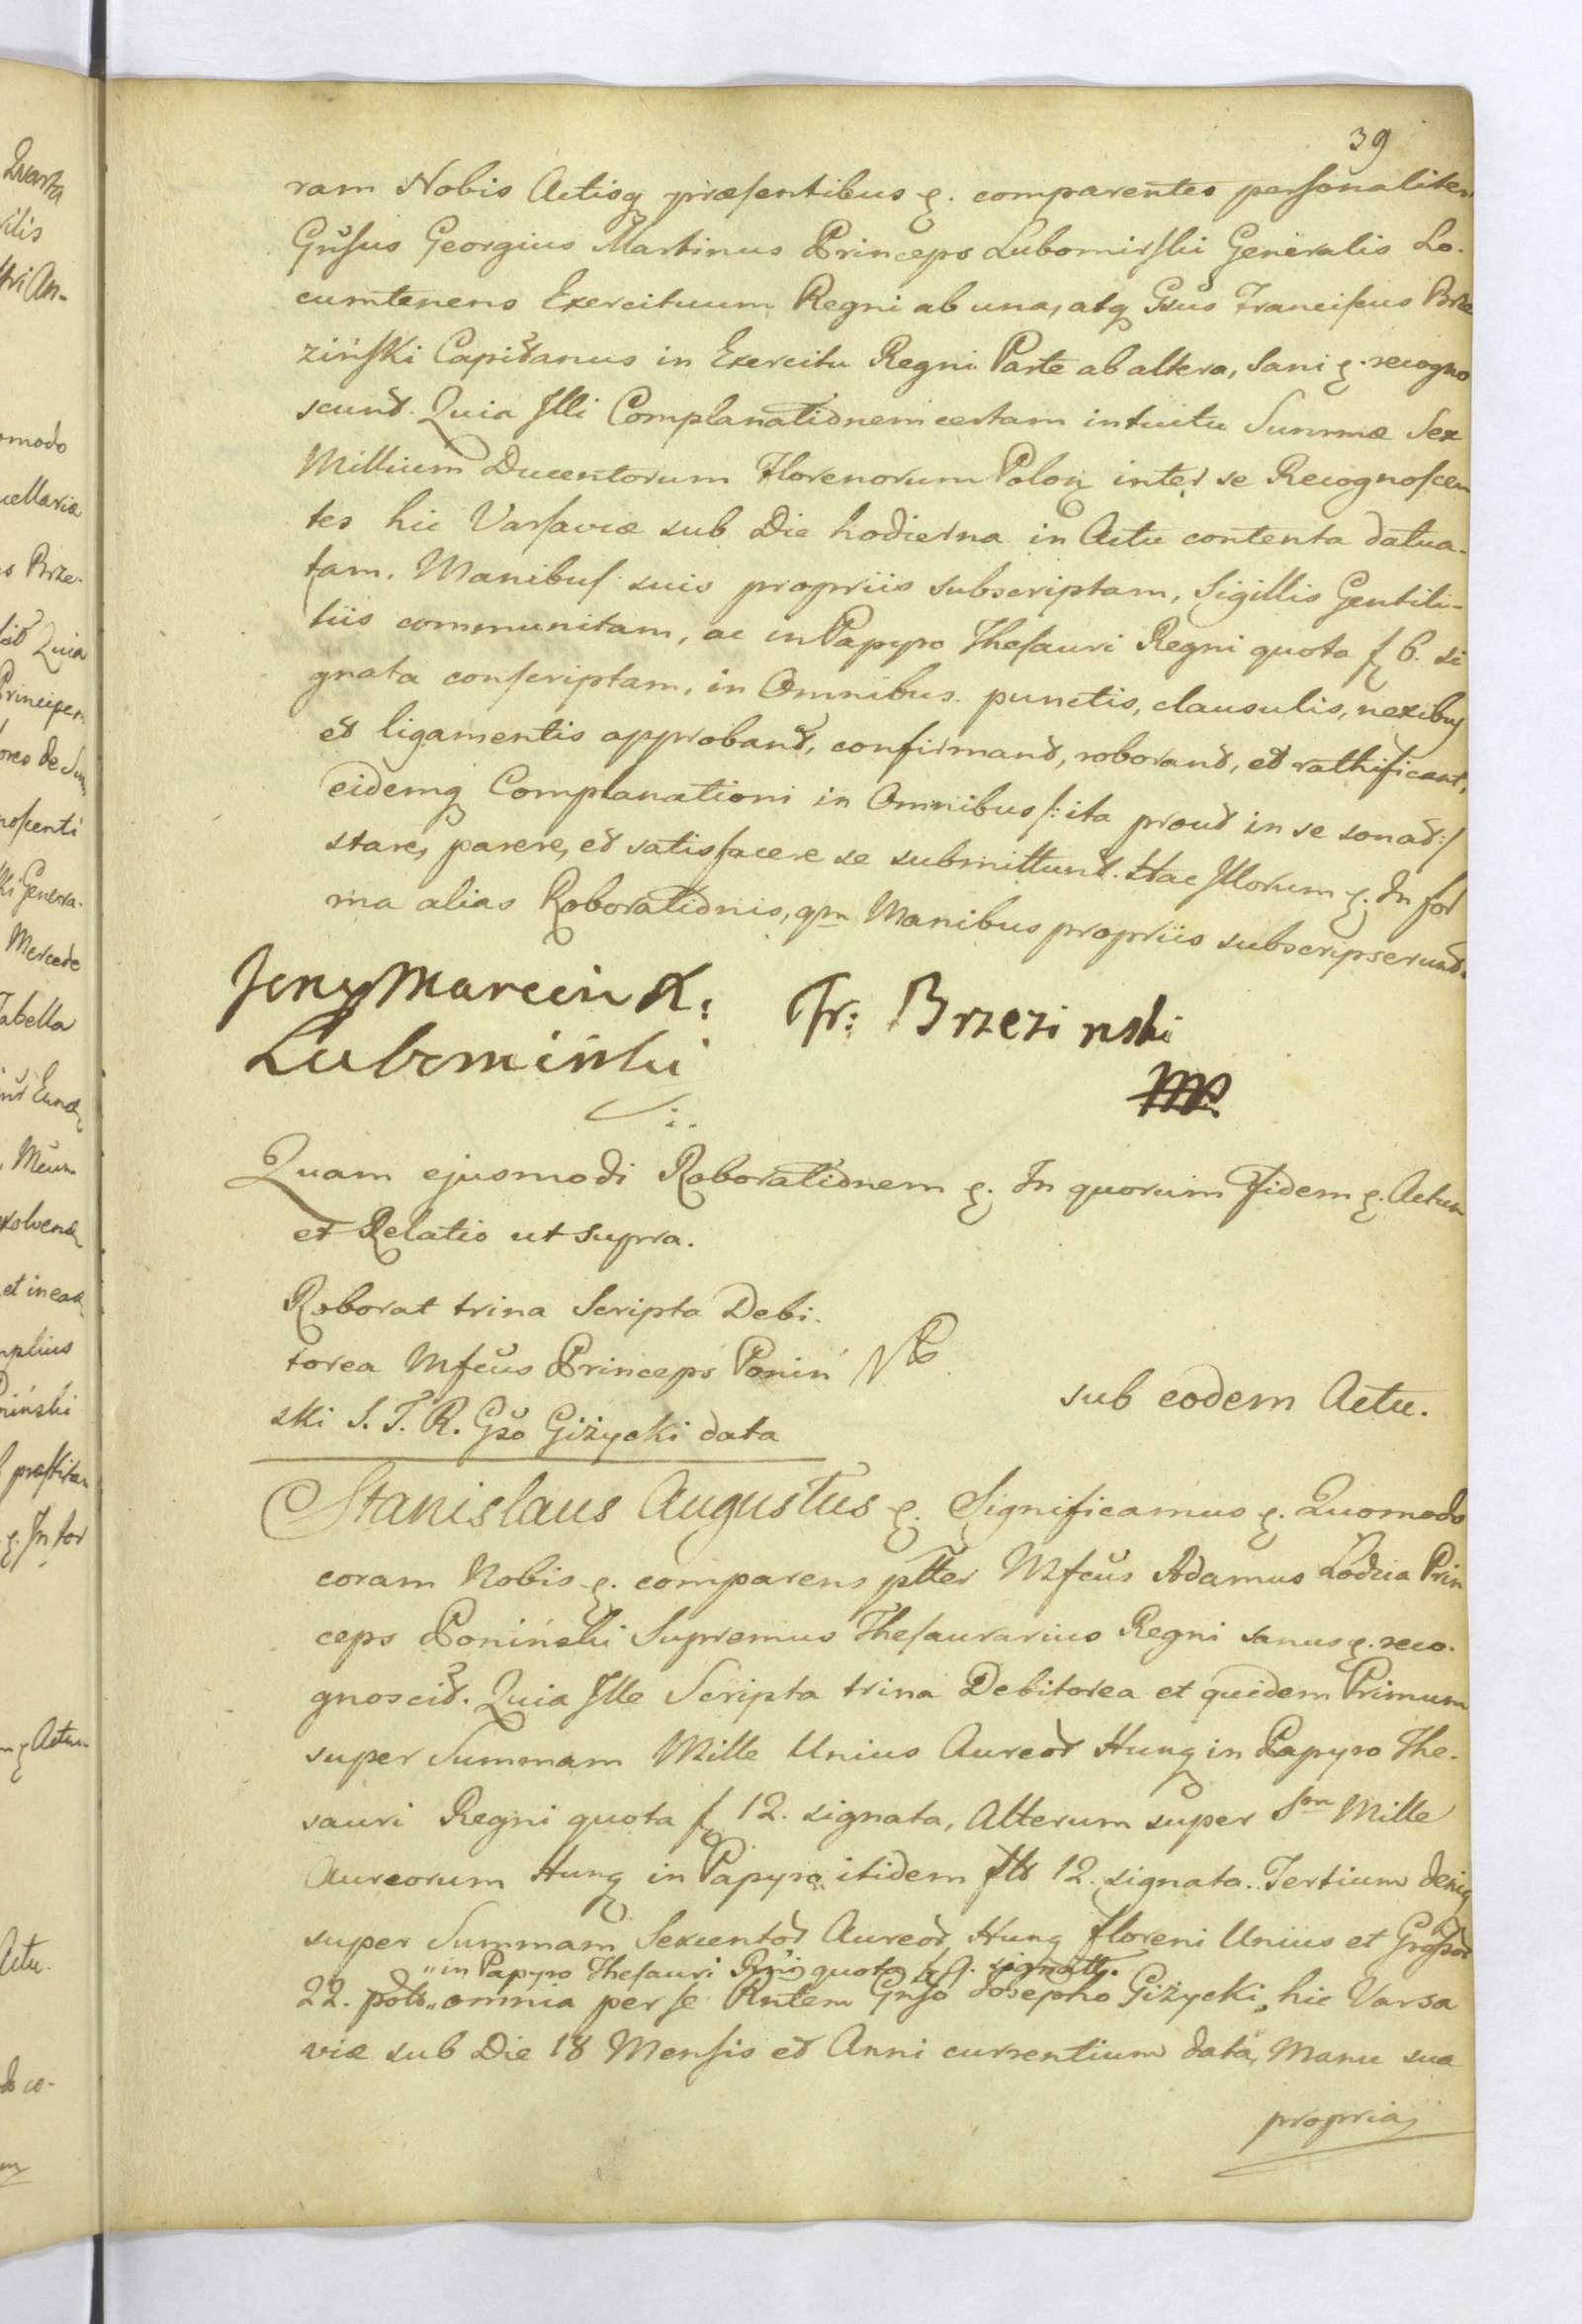 39
ram Nobis Actisq praesentibus &. comparentes personaliter
Gnŝus Georgius Martinus Princeps Lubomirski Generalis Lo-
cumtenens Exercituum Regni ab una, atq Gsus Franciscus Brze
ziński Capitanus in Exercitu Regni Parte ab altera, Sani &. recogno
scunt. Quia Illi Complanationem certam intuitu Summæ Sex
Millium Ducentorum Florenorum Polon inter se Recognoscen
tes hic Varsaviæ sub Die hodierna in Actu contenta datua-
tam, Manibus suis propriis subscriptam, Sigillis Gentili-
tiis communitam, ac in Papyro Thesauri Regni quota f 6. si
gnata conscriptam, in Omnibus punctis, clausulis, nexibus
et ligamentis approbant, confirmant, roborant, et rathificant,
eidemq Complanationi in Omnibus /: ita prout in se sonat :/
stare, parere, et satisfacere se submittunt. Hac Illorum &. In for
ma alias Roborationis, qm Manibus propriis subscripserunt.
Jerzy Marcin X: Fr: Brzezinski
Lubomirski mp
Quam ejusmodi Roborationem &. In quorum Fidem &. Actum
et Relatio ut supra.
Roborat trina Scripta Debi-
torea Mfcus Princeps Poniń
ski S. T. R. Gso Giżycki data
sub eodem Actu.
Stanislaus Augustus &. Significamus &. Quomodo
coram Nobis &. comparens pltter Mfcus Adamus Łodzia Prin
ceps Poniński Supremus Thesaurarius Regni sanus &. reco-
gnoscit. Quia Ille Scripta trina Debitorea et quidem Primum
super Summam Mille Unius Aureor Hung in Papyro The-
sauri Regni quota f 12. signata, Alterum super Sm Mille
Aureorum Hung in Papyro itidem fls 12. signata. Tertium deniq
super Summam Sexcentor Aureor Hung Floreni Unius et Grossor
„in Papyro Thesauri Regni quota signatt.
22. polo „omnia per se Rntem Gnso Josepho Giżycki, hic Varsa
viæ sub Die 18 Mensis et Anni currentium data, Manu sua
propria